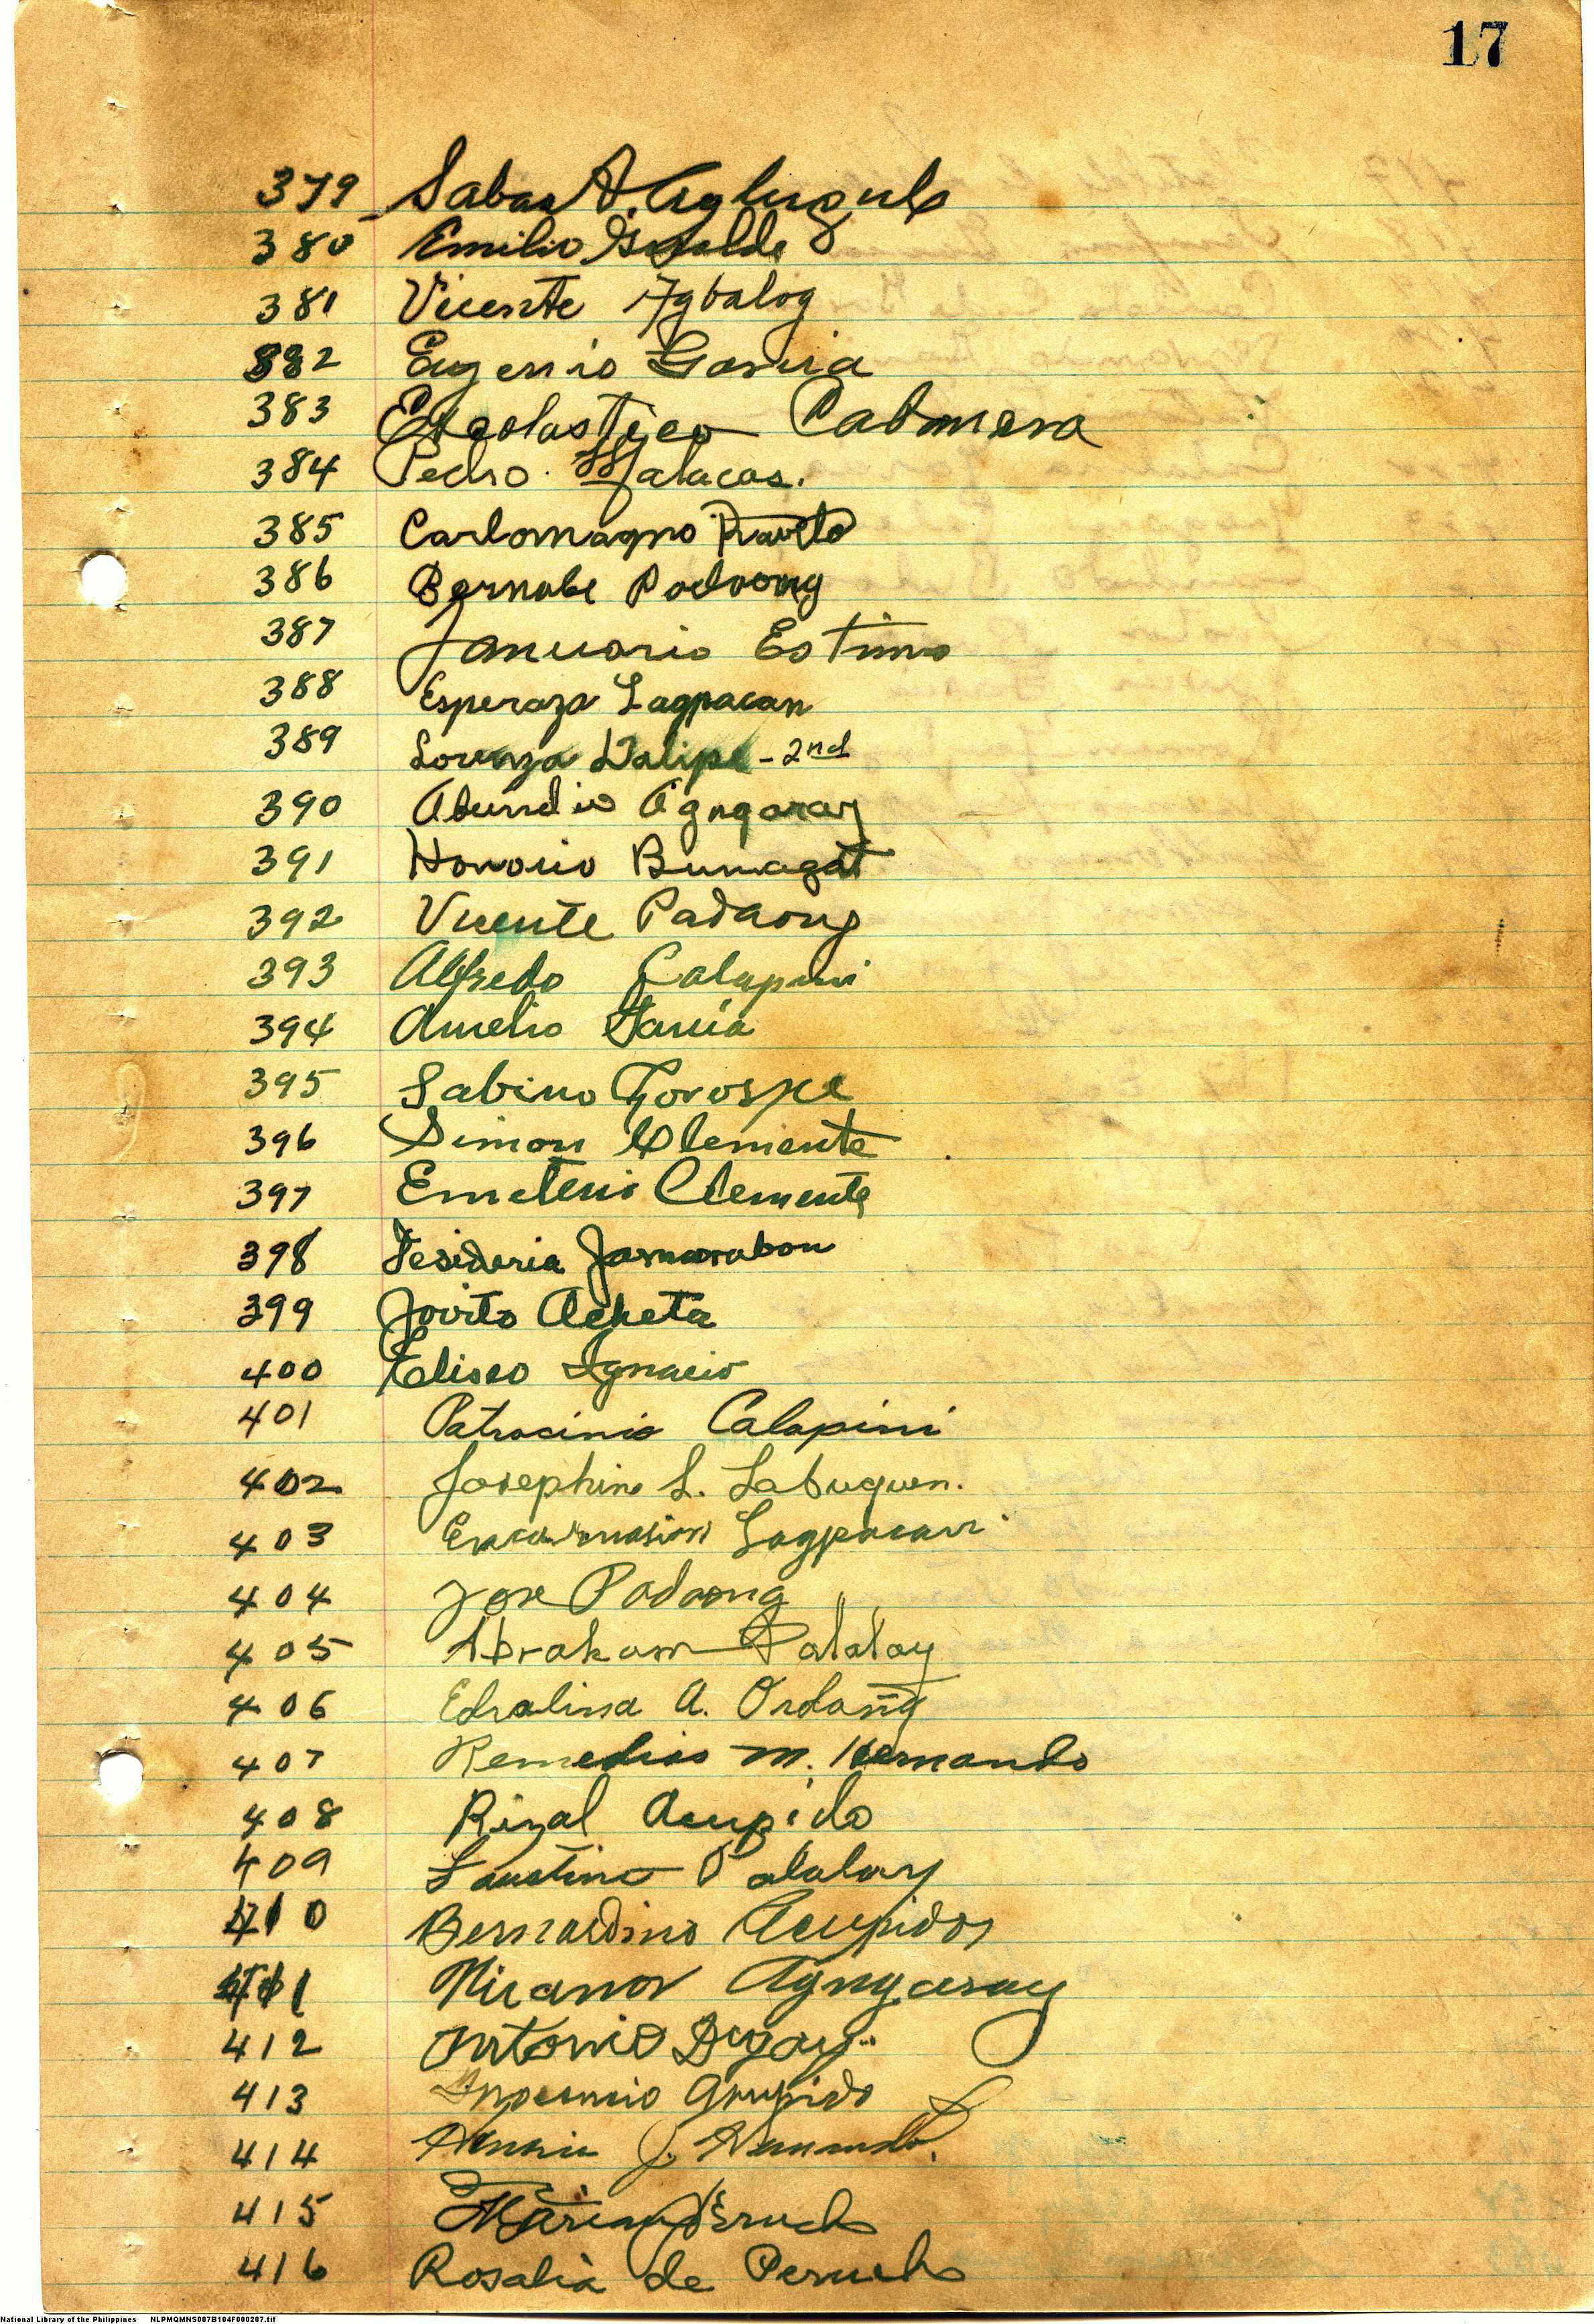 17
379 Sabas A. Aglugub
380 Emilio
381 Vicente Agbalog
382 Eugenio Garcia
383 Escolastico Cabanera
384 Pedro Malacas.
385 Carlomagno
386 Bernabe Padaong
387 Januario Estimo
388 Esperaza Lagpacan
389 Lorenza Dalipe - 2nd
390 Abundio Agngaray
391 Honorio Bumagat
392 Vicente Padaong
393 Alfredo Calapini
394 Aurelio Garcia
395 Sabino Gorospe
396 Simon Clemente
397 Emeterio Clemente
398 Desideria Jasmarabon
399 Jovito Acheta
400 Eliseo Ignacio
401 Patrocinio Calapini
402 Josephine L. Labuguen.
403 Encarnasion Lagpacan
404 Jose Padaong
405 Abraham Palalay
406 Edralina A.
407 Remedios M. Hernando
408 Rizal Acupido
409 Faustino Palalay
410 Bernardino Acupido
411 Nicanor Agngaray
412 Antonio
413 Acupido
414 J. Hernando.
415 Mariano Perucho
416 Rosalia de Perucho
National Library of the Philippines NLPMQMNS007B104F000207.tif